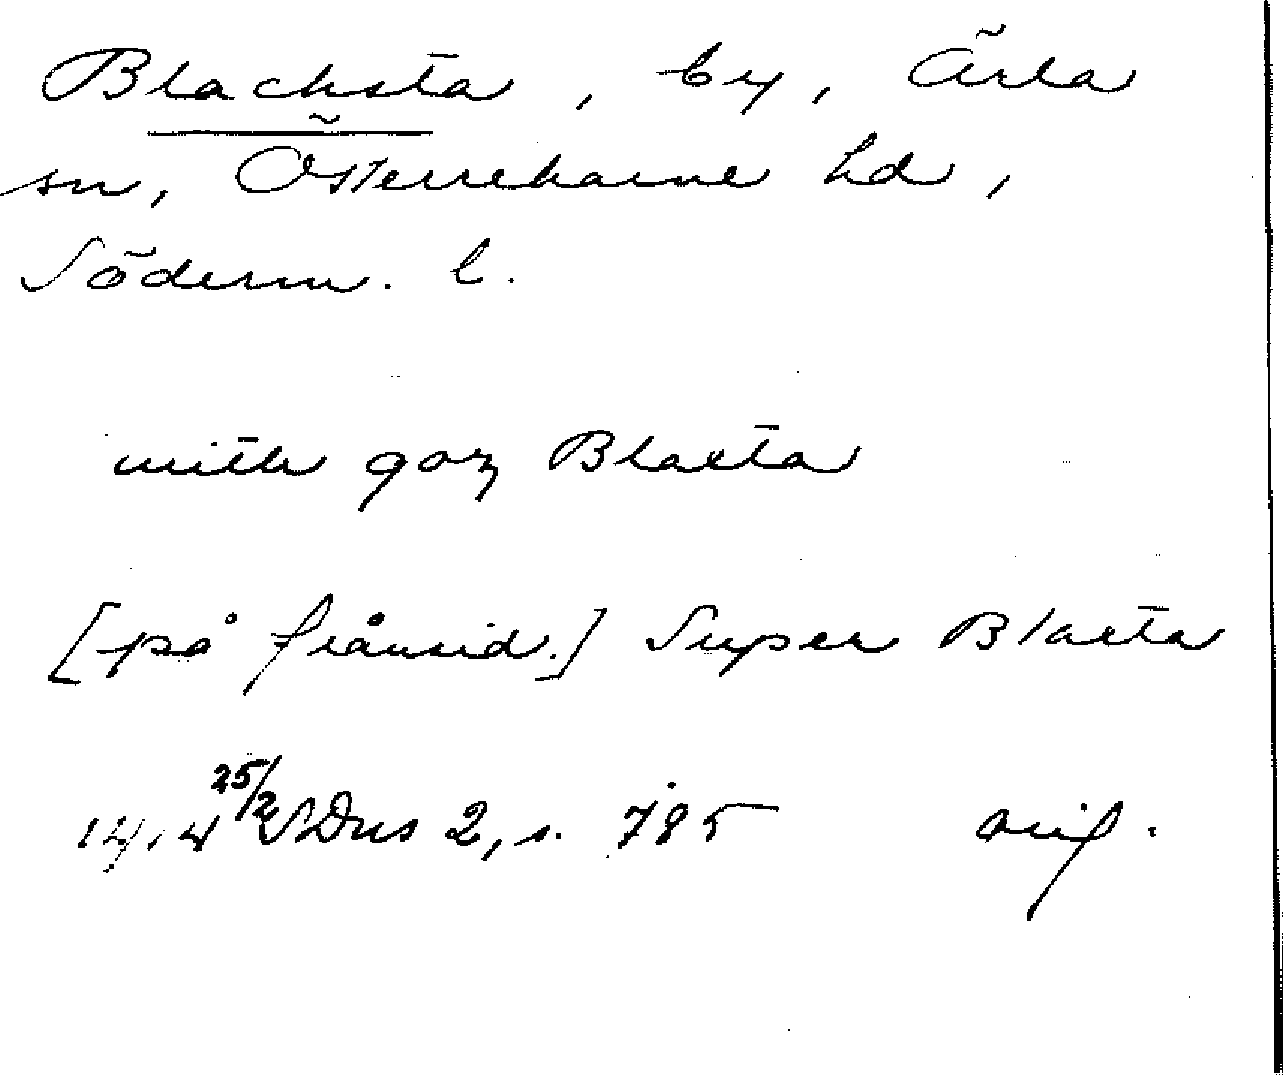 Blacksta, by, Ärla
sn, Österrekarne hd,
Söderm. l.
mith goz Blacta
[på frånsid.] Super Blacta
1414 25/2 SDns 2, s. 785 orig.